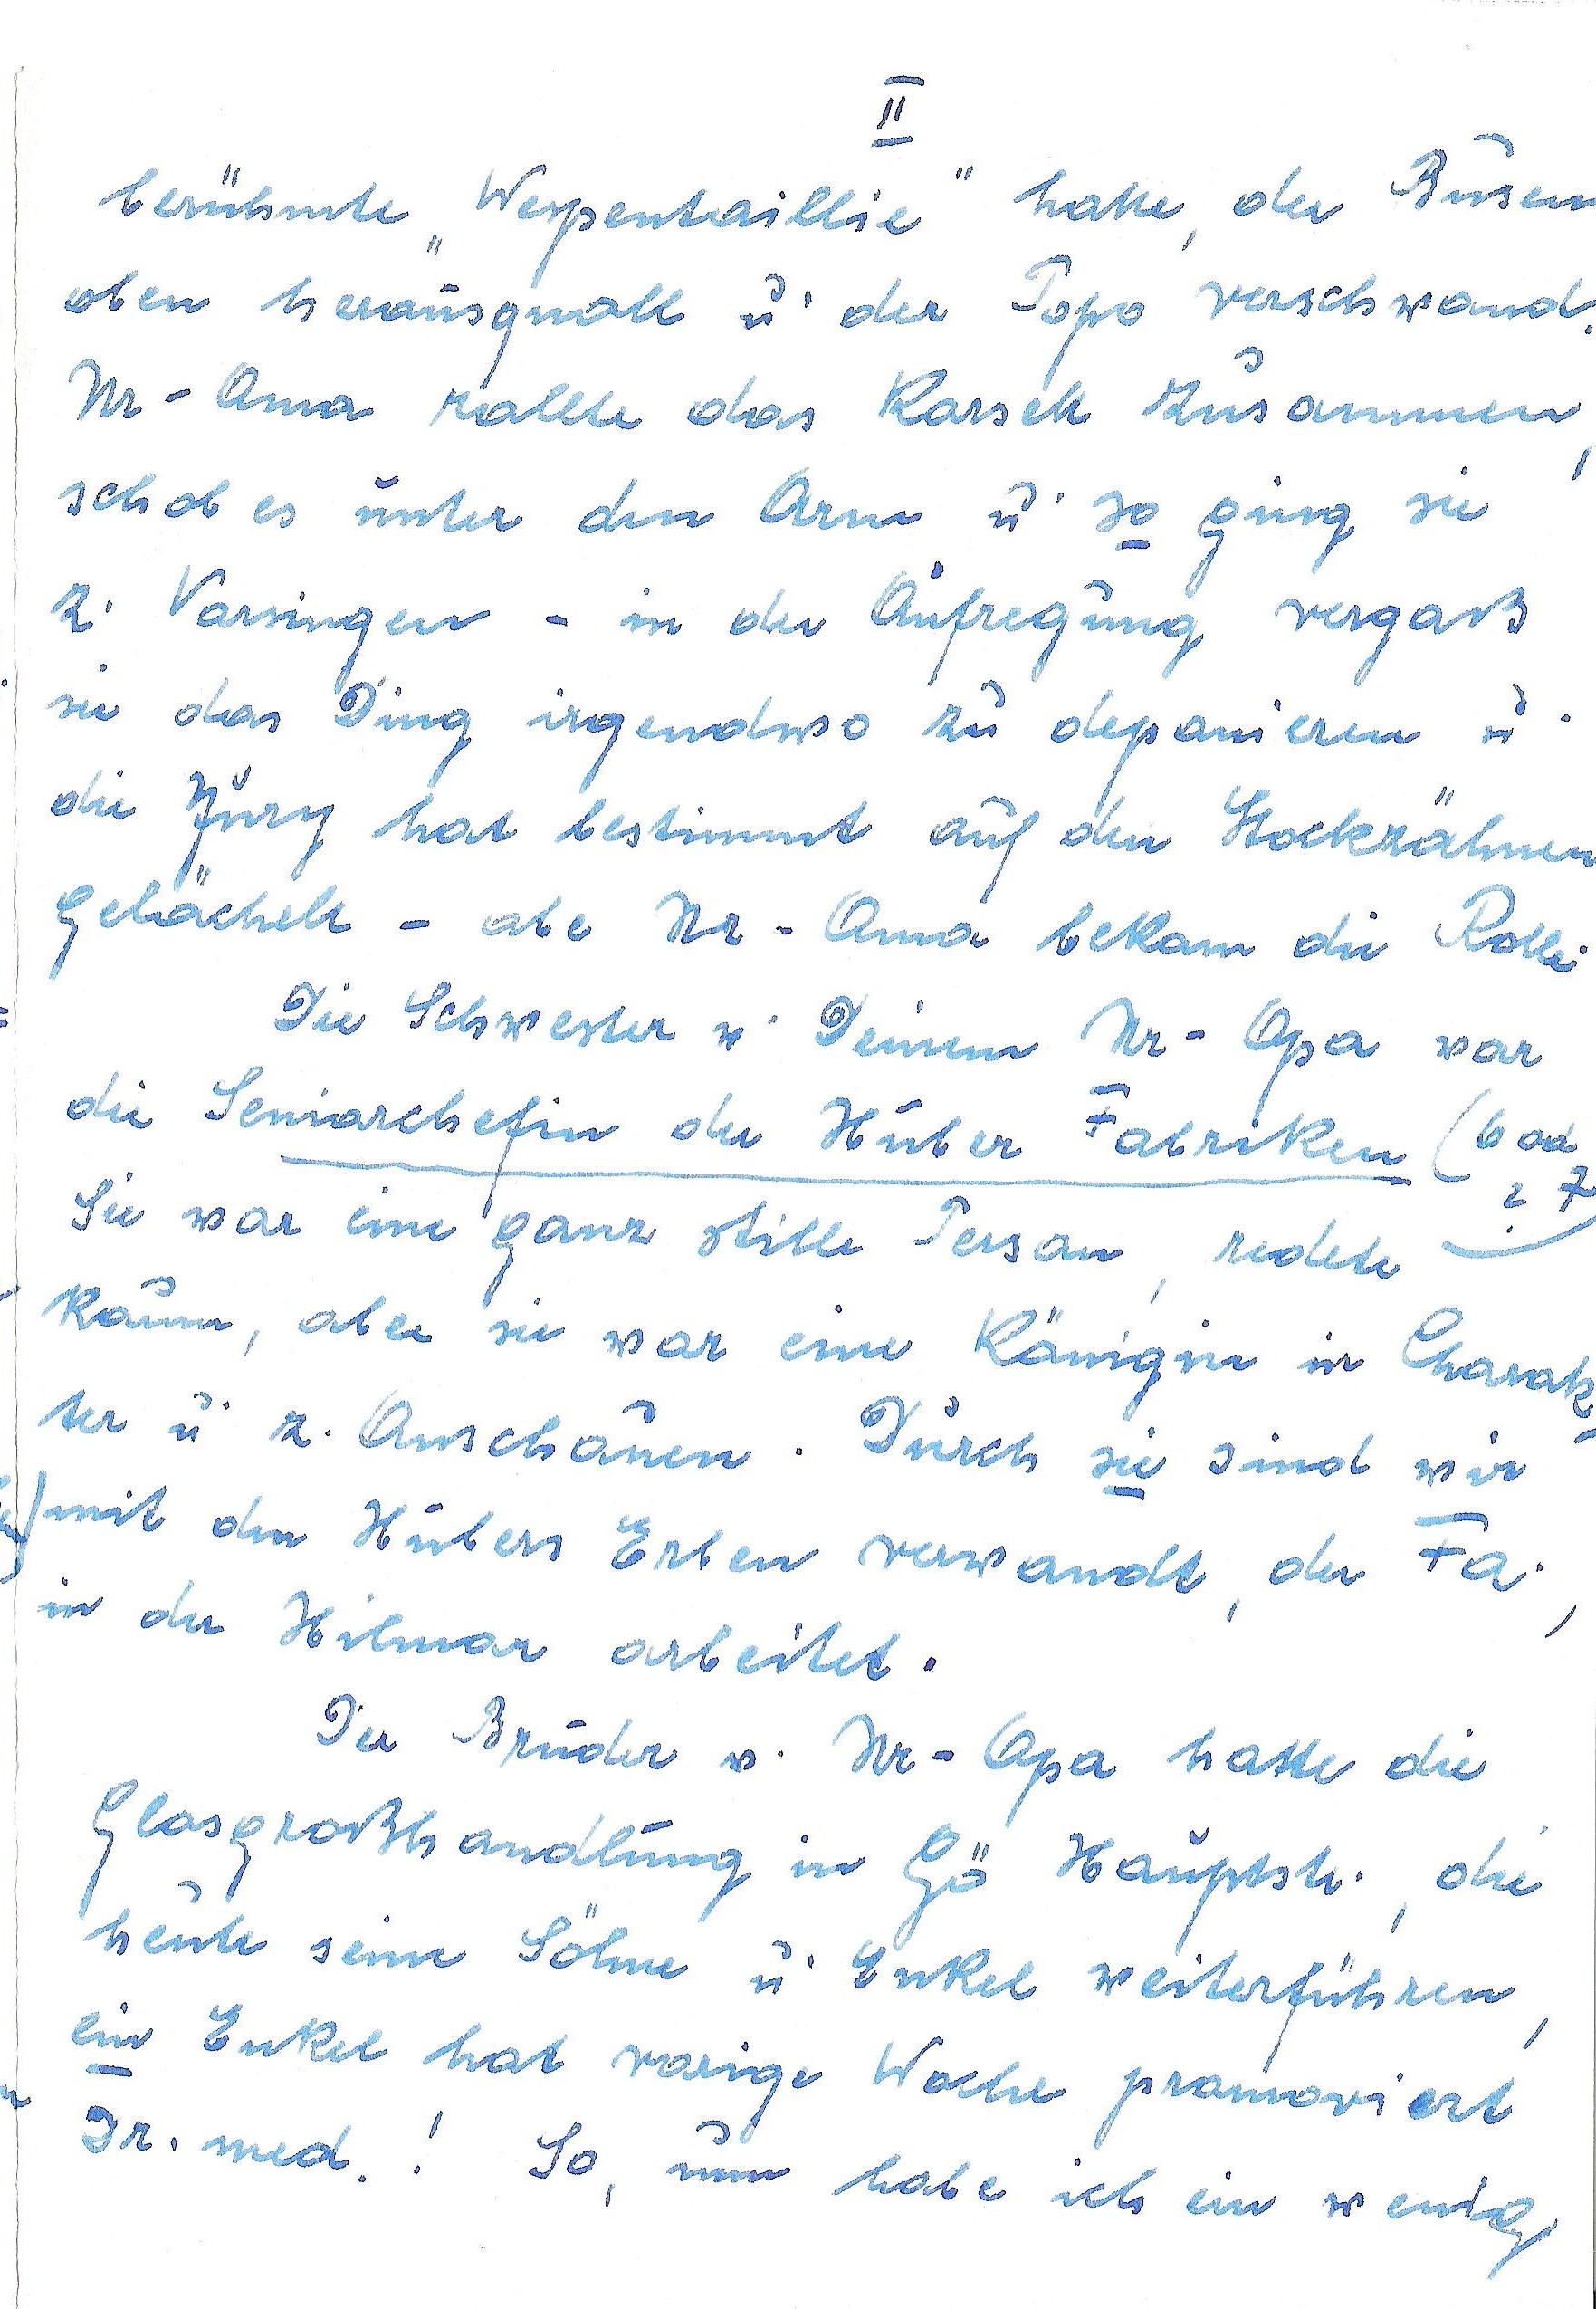 II
berühmte „Wespentaillie" hatte, der Busen
oben herausquoll u. der Popo verschwand.
Ur-Oma rollte das Korsett zusammen,
schob es unter den Arm u. so ging sie
z. Vorsingen - in der Aufregung vergaß
sie das Ding irgendwo zu deponieren u.
die Jury hat bestimmt auf den Stockzähnen
Gelächelt - abe Ur-Oma bekam die Rolle.
Die Schwester v. Deinem Ur-Opa war
die Seniorchefin der Huber Fabriken (6 od
7 ?)
Sie war eine ganz stille Person, redete
kaum, aber sie war eine Königin in Charak-
ter u. z. Anschauen. Durch sie sind wir
mit den Hubers Erben verwandt, der Fa.,
in der Hilmar arbeitet.
Der Bruder v. Ur-Opa hatte die
Glasgroßhandlung in Gö Hauptstr., die
heute seine Söhne u. Enkel weiterführen,
ein Enkel hat vorige Woche promoviert
Dr. med.! So, nun habe ich ein wenig